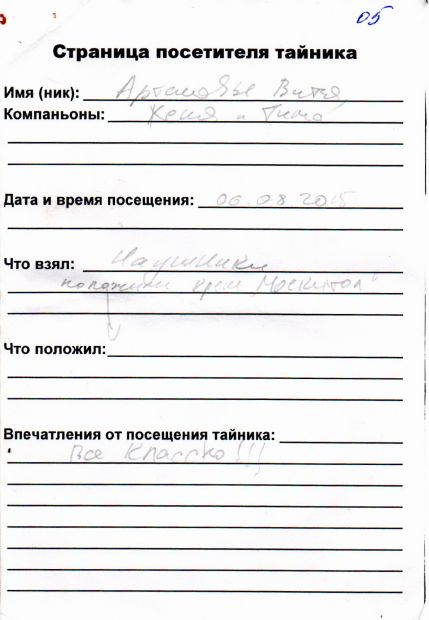 05
Страница посетителя тайника
Имя (ник): Артемовы Витя,
Компаньоны: Ксения и Тима
Дата и время посещения: 06.08.2015
Что взял: Наушники
положили крем "Москитол"
Что положил:
Впечатления от посещения тайника:
Все Классно!!!